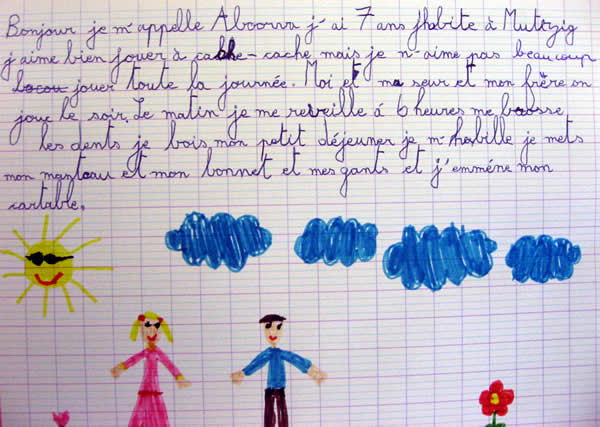 Bonjour je m'appelle Aboorva j'ai 7 ans j'habite à Mutzig
j'aime bien jouer à cache-cache mais je n'aime pas beaucoup
jouer toute la journée. Moi et ma seur et mon frère on
joue le soir. Le matin je me reveille à 6 heures me brosse
les dents je bois mon petit déjeuner je m'habille je mets
mon manteau et mon bonnet et mes gants et j'emméne mon
cartable.